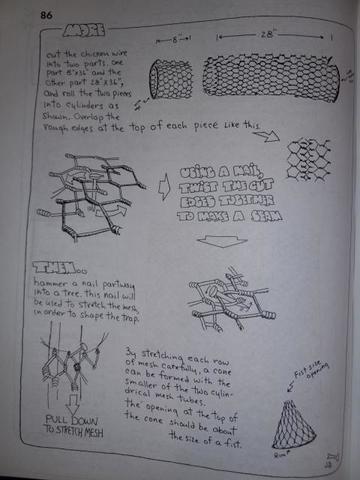 86
MORE
cut the chicken wire
into two parts. one
part 8"x36" and the
other part 28"x36",
and roll the two pieces
into cylinders as
shown. Overlap the
rough edges at the top of each piece like this
8"
28"
USING A NAIL,
TWIST THE CUT
EDGES TOGETHER
TO MAKE A SEAM
THEN..
hammer a nail partway
into a tree. this nail will
be used to stretch the mesh,
in order to shape the trap.
PULL DOWN
TO STRETCH MESH
By stretching each row
of mesh carefully, a cone
can be formed with the
smaller of the two cylin-
drical mesh tubes.
the opening at the top of
the cone should be about
the size of a fist.
Fist-size
opening
Rim